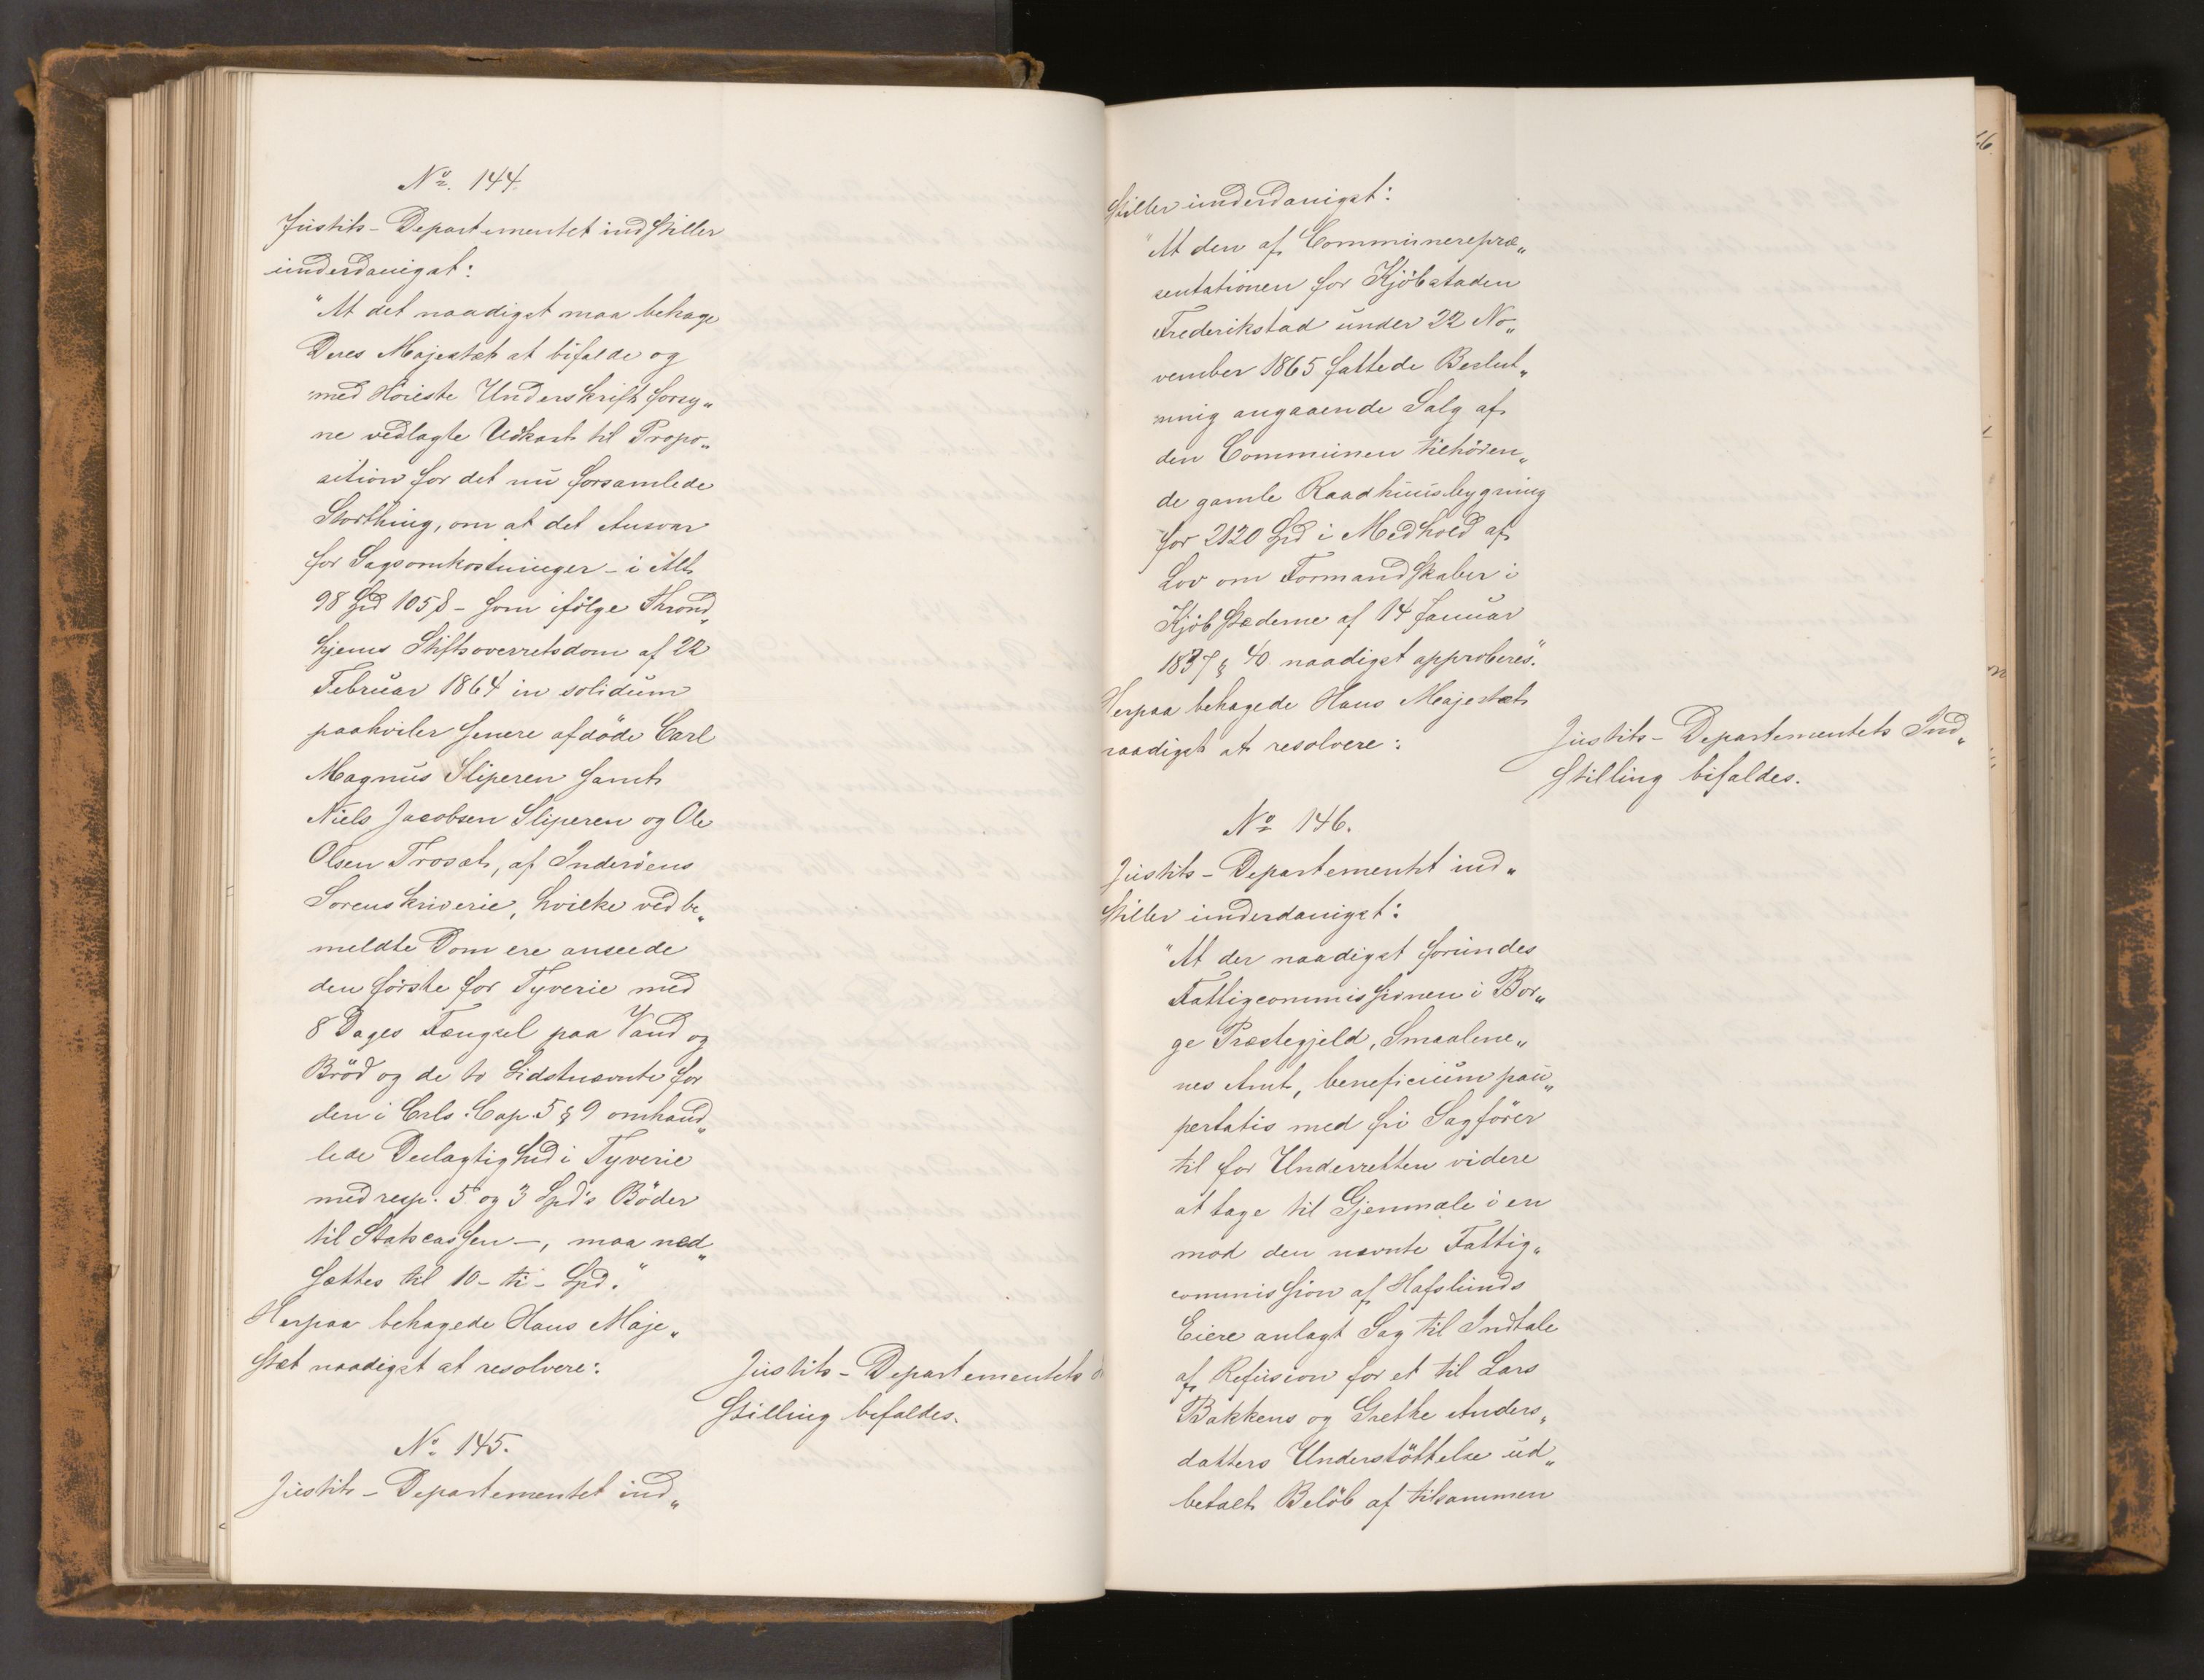 No. 144.
Justits-Departementet indstiller
underdanigst:
"At det naadigst maa behage
Deres Majestæt at bifalde og
med Höieste Underskrift forsy„
ne vedlagte Udkast til Propo„
sition for det nu forsamlede
Storthing, om at det Ansvar
for Sagsomkostninger - i Alt
98 Spd 105 ß - som ifölge Thrond„
hjems Stiftsoverretsdom af 22
Februar 1864 in solidum
paahviler senere afdöde Carl
Magnus Sliperen samt
Niels Jacobsen Sliperen og Ole
Olsen Trosæt, af Inderöens
Sorenskriverie, hvilke ved be„
meldte Dom ere anseede
den förste for Tyverie med
8 Dages Fængsel paa Vand og
Bröd og de to Sidstnævnte for
den i Crls. Cap. 5 § 9 omhand„
lede Deelagtighed i Tyverie
med resp. 5 og 3 Spd's Böder
til Statscassen -, maa ned„
sættes til 10 - ti - Spd."
Herpaa behagede Hans Maje„
stæt naadigst at resolvere:
Justits-Departementets
Stilling bifaldes.
No. 145.
Justits-Departementet ind„
stiller underdanigst:
"At den af Communerepræ„
sentationen for Kjöbstaden
Frederikstad under 22 No„
vember 1865 fattede Beslut„
ning angaaende Salg af
den Communen tilhören„
de gamle Raadhuusbygning
for 2120 Spd i Medhold af
Lov om Formandskaber i
Kjöbstæderne af 14 Januar
1837 § 40 naadigst approberes".
Herpaa behagede Hans Majestæt
naadigst at resolvere:
Justits-Departementets Ind„
stilling bifaldes.
No 146.
Justits-Departementet ind„
stiller underdanigst:
"At der naadigst forundes
Fattigcommissionen i Bor„
ge Præstegjeld, Smaalene„
nes Amt, beneficium pau„
pertatis med fri Sagförer
til for Underretten videre
at tage til Gjenmæle i en
mod den nævnte Fattig„
commission af Hafslunds
Eiere anlagt Sag til Indtale
af Refusion for et til Lars
Bakkens og Grethe Anders„
datters Understöttelse ud„
betalt Belöb af tilsammen